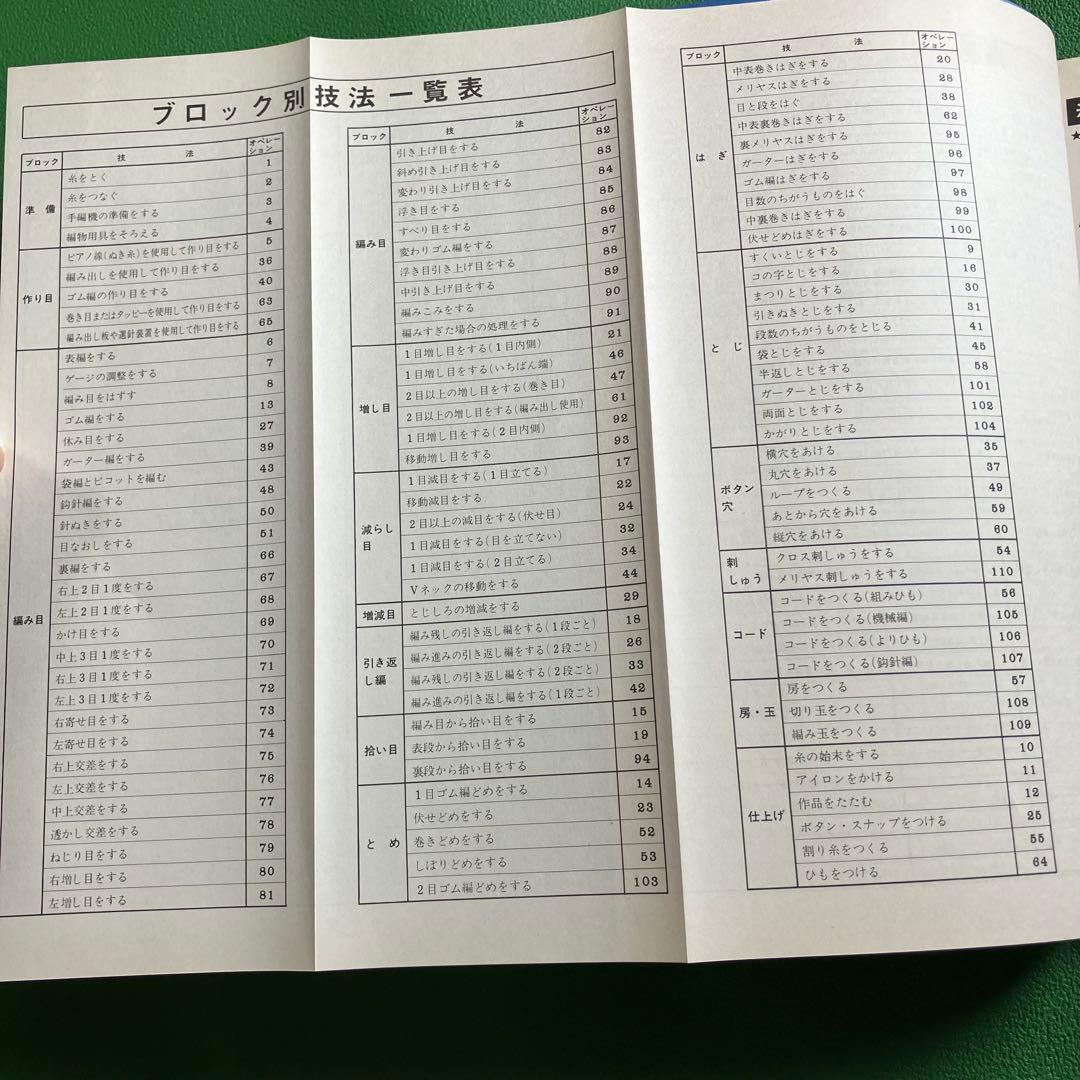 ブロック別技法一覧表
ブロック 技法 オペレーション
準備
糸をとく 1
糸をつなぐ 2
手編機の準備をする 3
編物用具をそろえる 4
作り目
ピアノ線(ぬき糸)を使用して作り目をする 5
編み出しを使用して作り目をする 36
ゴム編の作り目をする 40
巻き目またはタッピーを使用して作り目をする 63
編み出し板や選針装置を使用して作り目をする 65
編み目
表編をする 6
ゲージの調整をする 7
編み目をはずす 8
ゴム編をする 13
休み目をする 27
ガーター編をする 39
袋編とピコットを編む 43
鈎針編をする 48
針ぬきをする 50
目なおしをする 51
裏編をする 66
右上2目1度をする 67
左上2目1度をする 68
かけ目をする 69
中上3目1度をする 70
右上3目1度をする 71
左上3目1度をする 72
右寄せ目をする 73
左寄せ目をする 74
右上交差をする 75
左上交差をする 76
中上交差をする 77
透かし交差をする 78
ねじり目をする 79
右増し目をする 80
左増し目をする 81
ブロック 技法 オペレーション
編み目
引き上げ目をする 82
斜め引き上げ目をする 83
変わり引き上げ目をする 84
浮き目をする 85
すべり目をする 86
変わりゴム編をする 87
浮き目引き上げ目をする 88
中引き上げ目をする 89
編みこみをする 90
編みすぎた場合の処理をする 91
増し目
1目増し目をする(1目内側) 21
1目増し目をする(いちばん端) 46
2目以上の増し目をする(巻き目) 47
2目以上の増し目をする(編み出し使用) 61
1目増し目をする(2目内側) 92
移動増し目をする 93
減らし目
1目減目をする(1目立てる) 17
移動減目をする 22
2目以上の減目をする(伏せ目) 24
1目減目をする(目を立てない) 32
1目減目をする(2目立てる) 34
Vネックの移動をする 44
増減目
とじしろの増減をする 29
引き返し編
編み残しの引き返し編をする(1段ごと) 18
編み進みの引き返し編をする(2段ごと) 26
編み残しの引き返し編をする(2段ごと) 33
編み進みの引き返し編をする(1段ごと) 42
拾い目
編み目から拾い目をする 15
表段から拾い目をする 19
裏段から拾い目をする 94
とめ
1目ゴム編どめをする 14
伏せどめをする 23
巻きどめをする 52
しぼりどめをする 53
2目ゴム編どめをする 103
ブロック 技法 オペレーション
はぎ
中表巻きはぎをする 20
メリヤスはぎをする 28
目と段をはぐ 38
中表裏巻きはぎをする 62
裏メリヤスはぎをする 95
ガーターはぎをする 96
ゴム編はぎをする 97
目数のちがうものをはぐ 98
中裏巻きはぎをする 99
伏せどめはぎをする 100
とじ
すくいとじをする 9
コの字とじをする 16
まつりとじをする 30
引きぬきとじをする 31
段数のちがうものをとじる 41
袋とじをする 45
半返しとじをする 58
ガーターとじをする 101
両面とじをする 102
かがりとじをする 104
ボタン穴
横穴をあける 35
丸穴をあける 37
ループをつくる 49
あとから穴をあける 59
縦穴をあける 60
刺しゅう
クロス刺しゅうをする 54
メリヤス刺しゅうをする 110
コード
コードをつくる(組みひも) 56
コードをつくる(機械編) 105
コードをつくる(よりひも) 106
コードをつくる(鈎針編) 107
房・玉
房をつくる 57
切り玉をつくる 108
編み玉をつくる 109
仕上げ
糸の始末をする 10
アイロンをかける 11
作品をたたむ 12
ボタン・スナップをつける 25
割り糸をつくる 55
ひもをつける 64
★